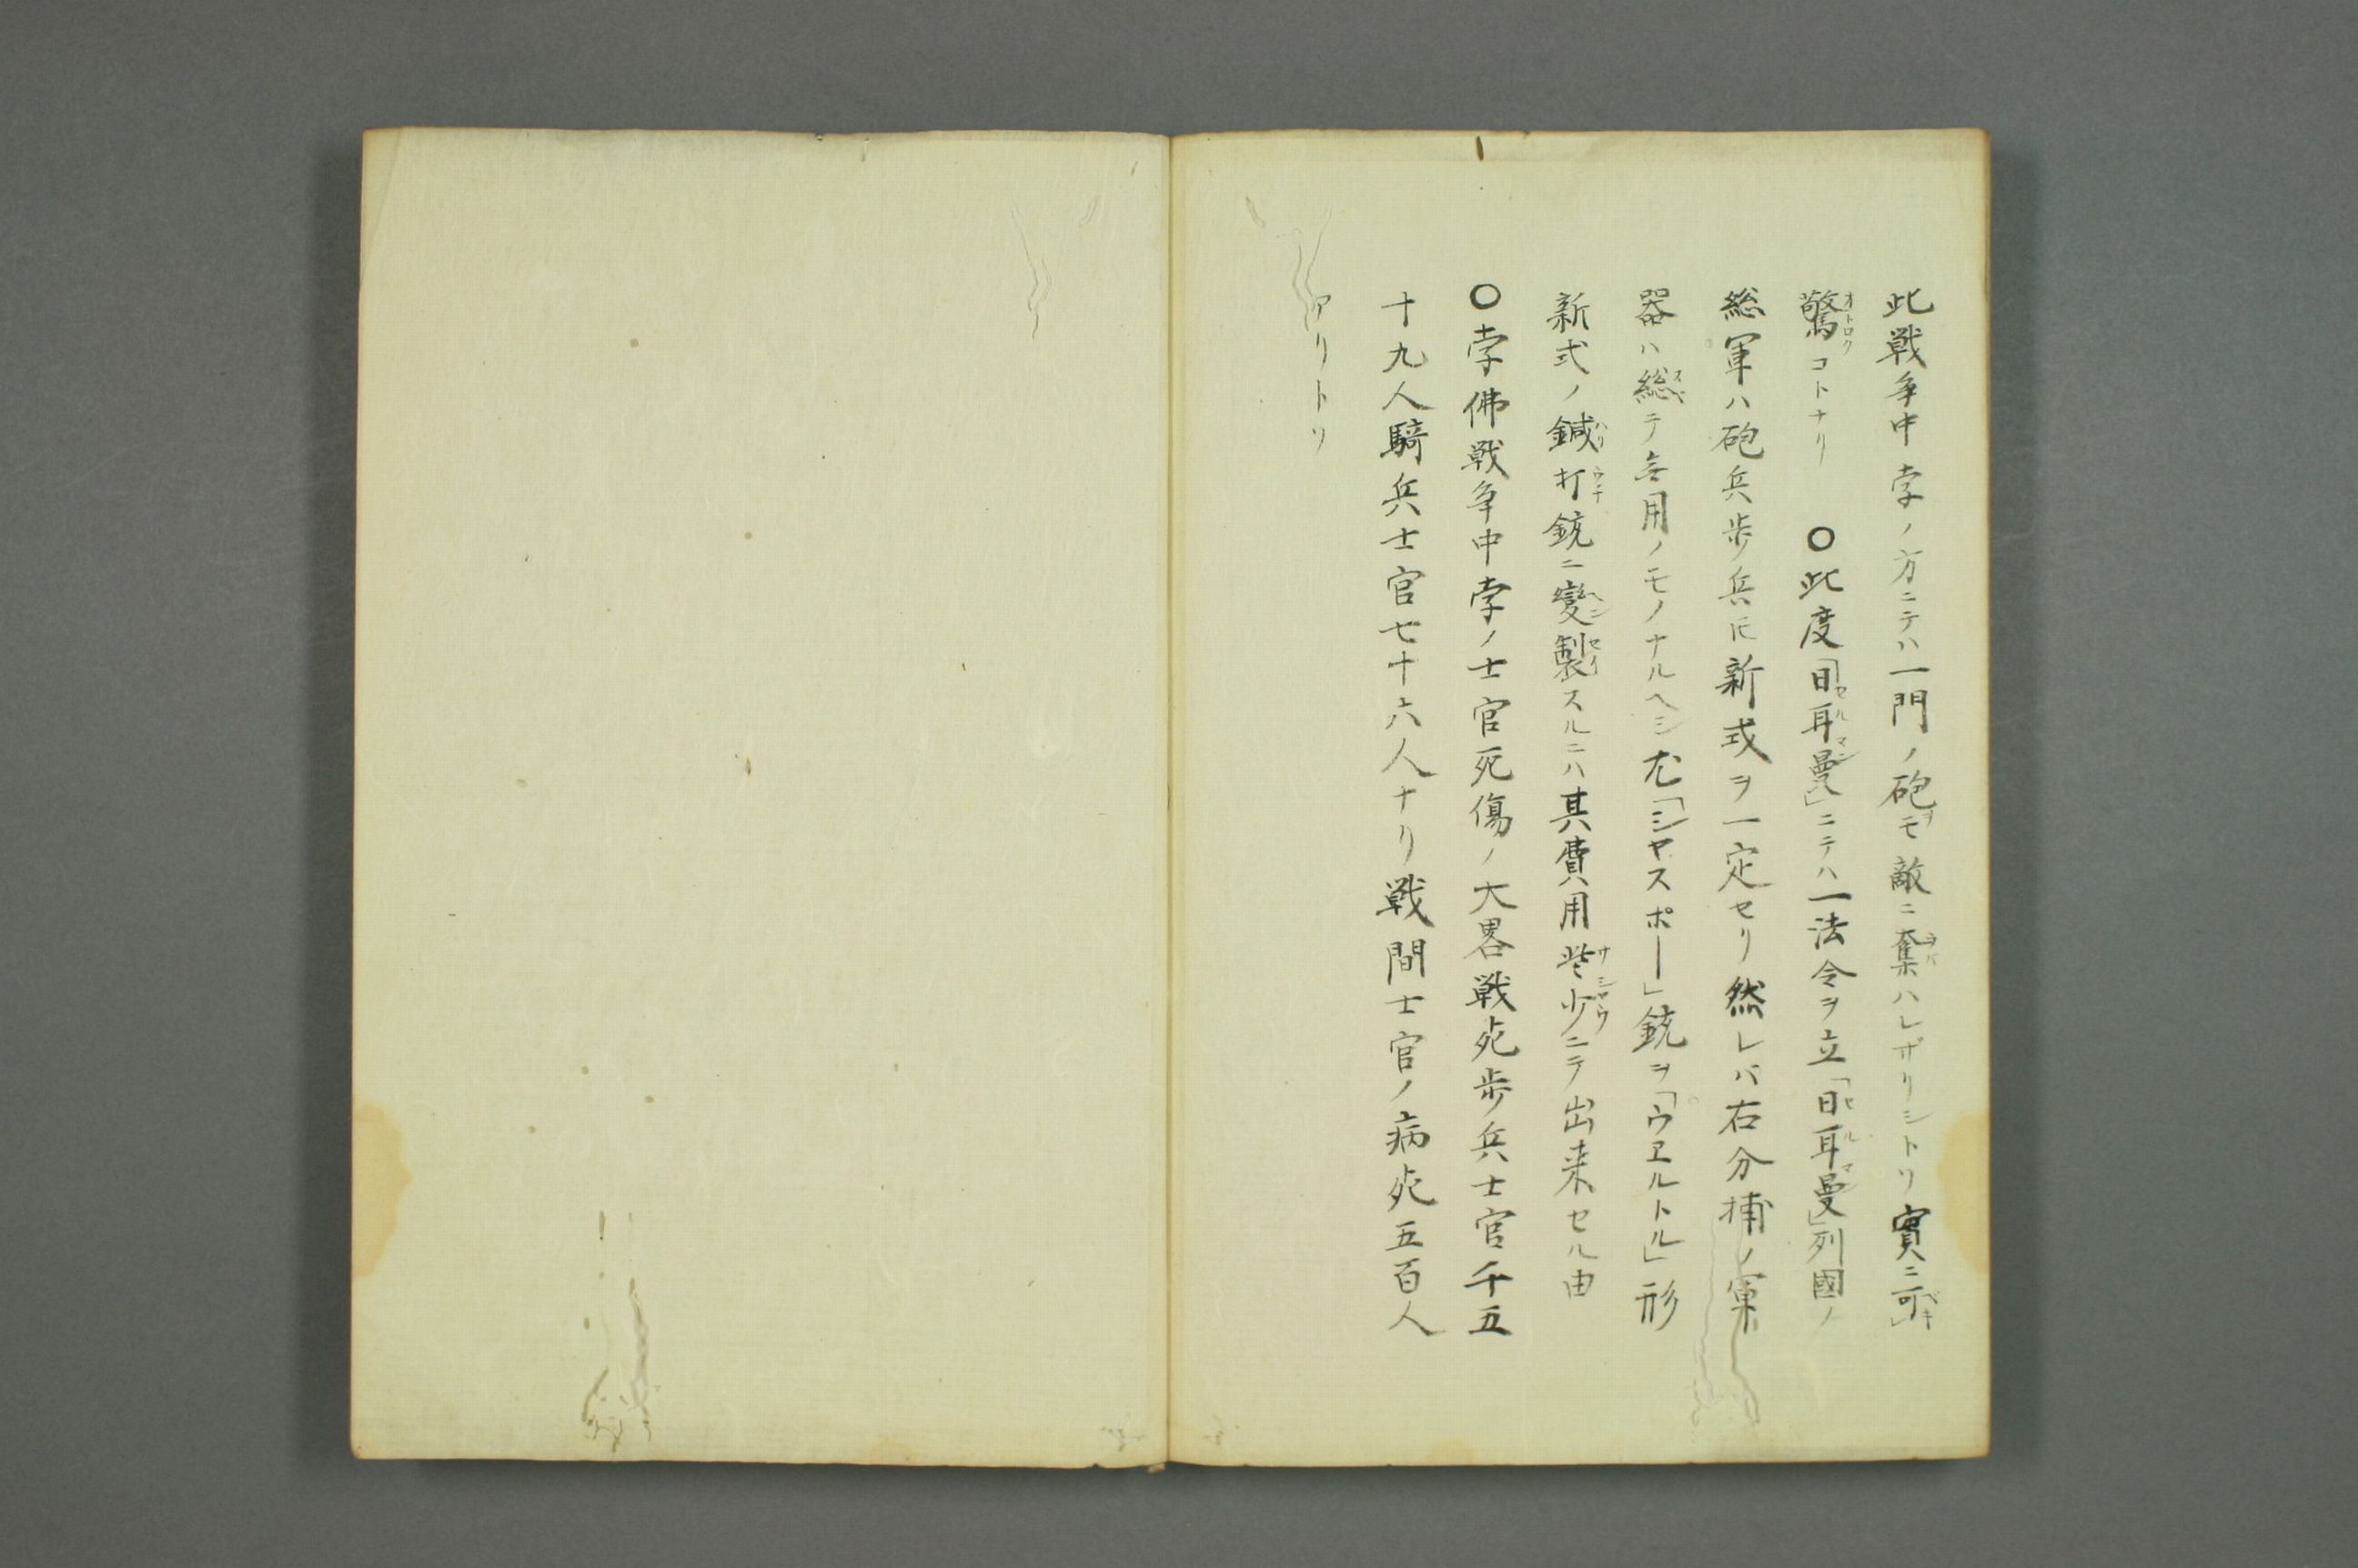 此戦争中孛ノ方ニテハ一門ノ砲モ敵ニ奪ハレザリシトソ實ニ可
驚コトナリ　〇此度「日耳曼」ニテハ一法令ヲ立「日耳曼」列國ノ
総軍ハ砲兵歩兵圧新式ヲ一定セリ然レバ右分捕ノ軍
器ハ総テ無用ノモノナルヘシ尤「シヤスポー」銃ヲ「ウヱルトル」形
新式ノ鍼打銃ニ變製スルニハ其費用些少ニテ出来セル由
〇孛佛戦争中孛ノ士官死傷ノ大畧戦死歩兵士官千五
十九人騎兵士官七十六人ナリ戦間士官ノ病死五百人
アリトソ